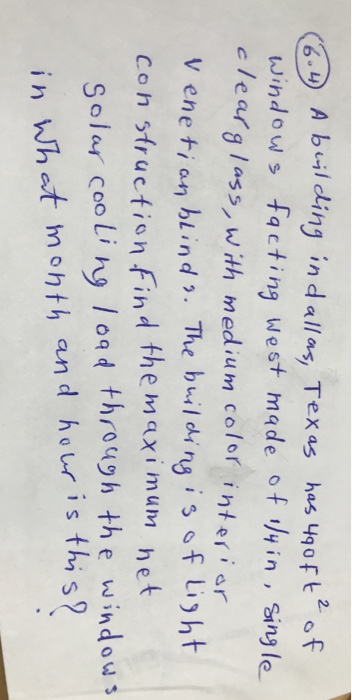 (6.4) A building in dallas, Texas has 490ft² of
windows facting west made of 1/4in, single
clear glass, with medium color interior
venetian blinds. The building is of Light
construction Find the maximum net
Solar cooling load through the windows
in What month and hour is this?